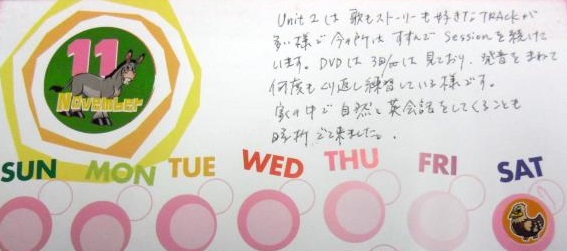 Unit 2 は 歌もストーリーも好きな TRACKが
多い様で 今の所は すすんで Sessionを続けて
います。DVDは 3回は見ており、発音をまねて
何度もくり返し練習している様です。
家の中で自然と英会話をしてくることも
時折 出て来ました。
11
November
SUN MON TUE WED THU FRI SAT